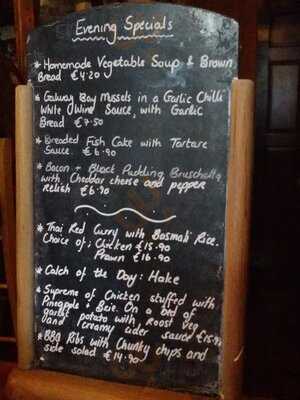 Evening Specials
* Homemade Vegetable Soup & Brown
Bread €4.20
* Galway Bay Mussels in a Garlic Chilli
White Wine Sauce, with Garlic
Bread €7.50
* Breaded Fish Cake with Tartare
Sauce. €6.90
* Bacon + Black Pudding Bruschetta
with Cheddar cheese and pepper
relish €6.90
* Thai Red Curry with Basmati Rice.
Choice of; Chicken €15.90
Prawn €16.90
* Catch of the Day: Hake
* Supreme of Chicken stuffed with
Pineapple + Brie. On a bed of
garlic potato with Roast Veg
and creamy cider sauce
* BBQ Ribs with Chunky chips and
side salad €14.90